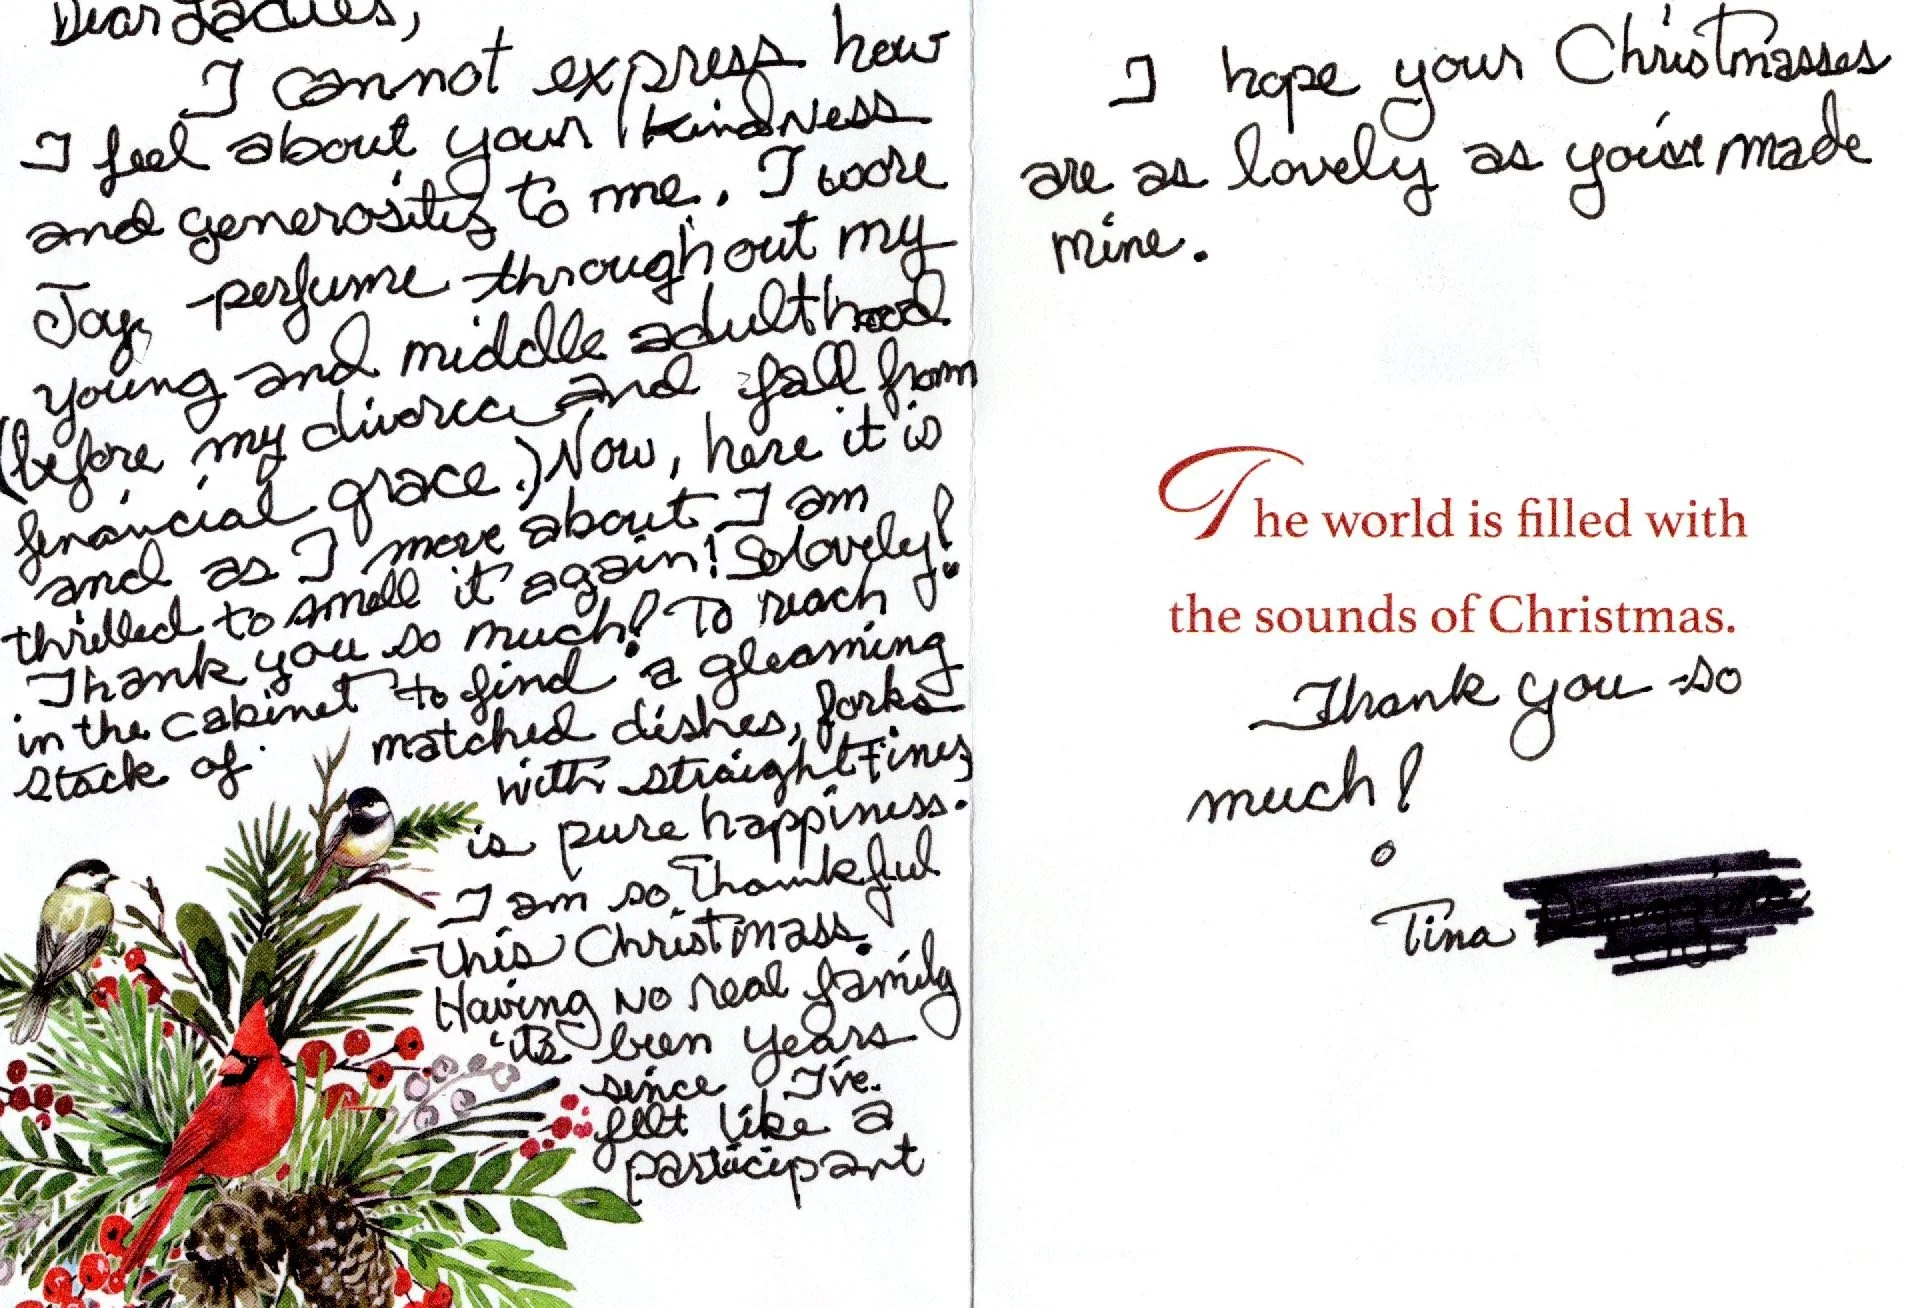 Dear Ladies,
I cannot express how
I feel about your kindness
and generosity to me. I wore
Joy perfume throughout my
young and middle adulthood
(before my divorce and fall from
financial grace.) Now, here it is
and as I move about I am
thrilled to smell it again! So lovely!
Thank you so much! To reach
in the cabinet to find a gleaming
stack of matched dishes, forks
with straight tines
is pure happiness.
I am so thankful
this Christmass.
Having no real family
it's been years
since I've
felt like a
participant
I hope your Christmasses
are as lovely as you've made
mine.
The world is filled with
the sounds of Christmas.
Thank you so
much!
Tina